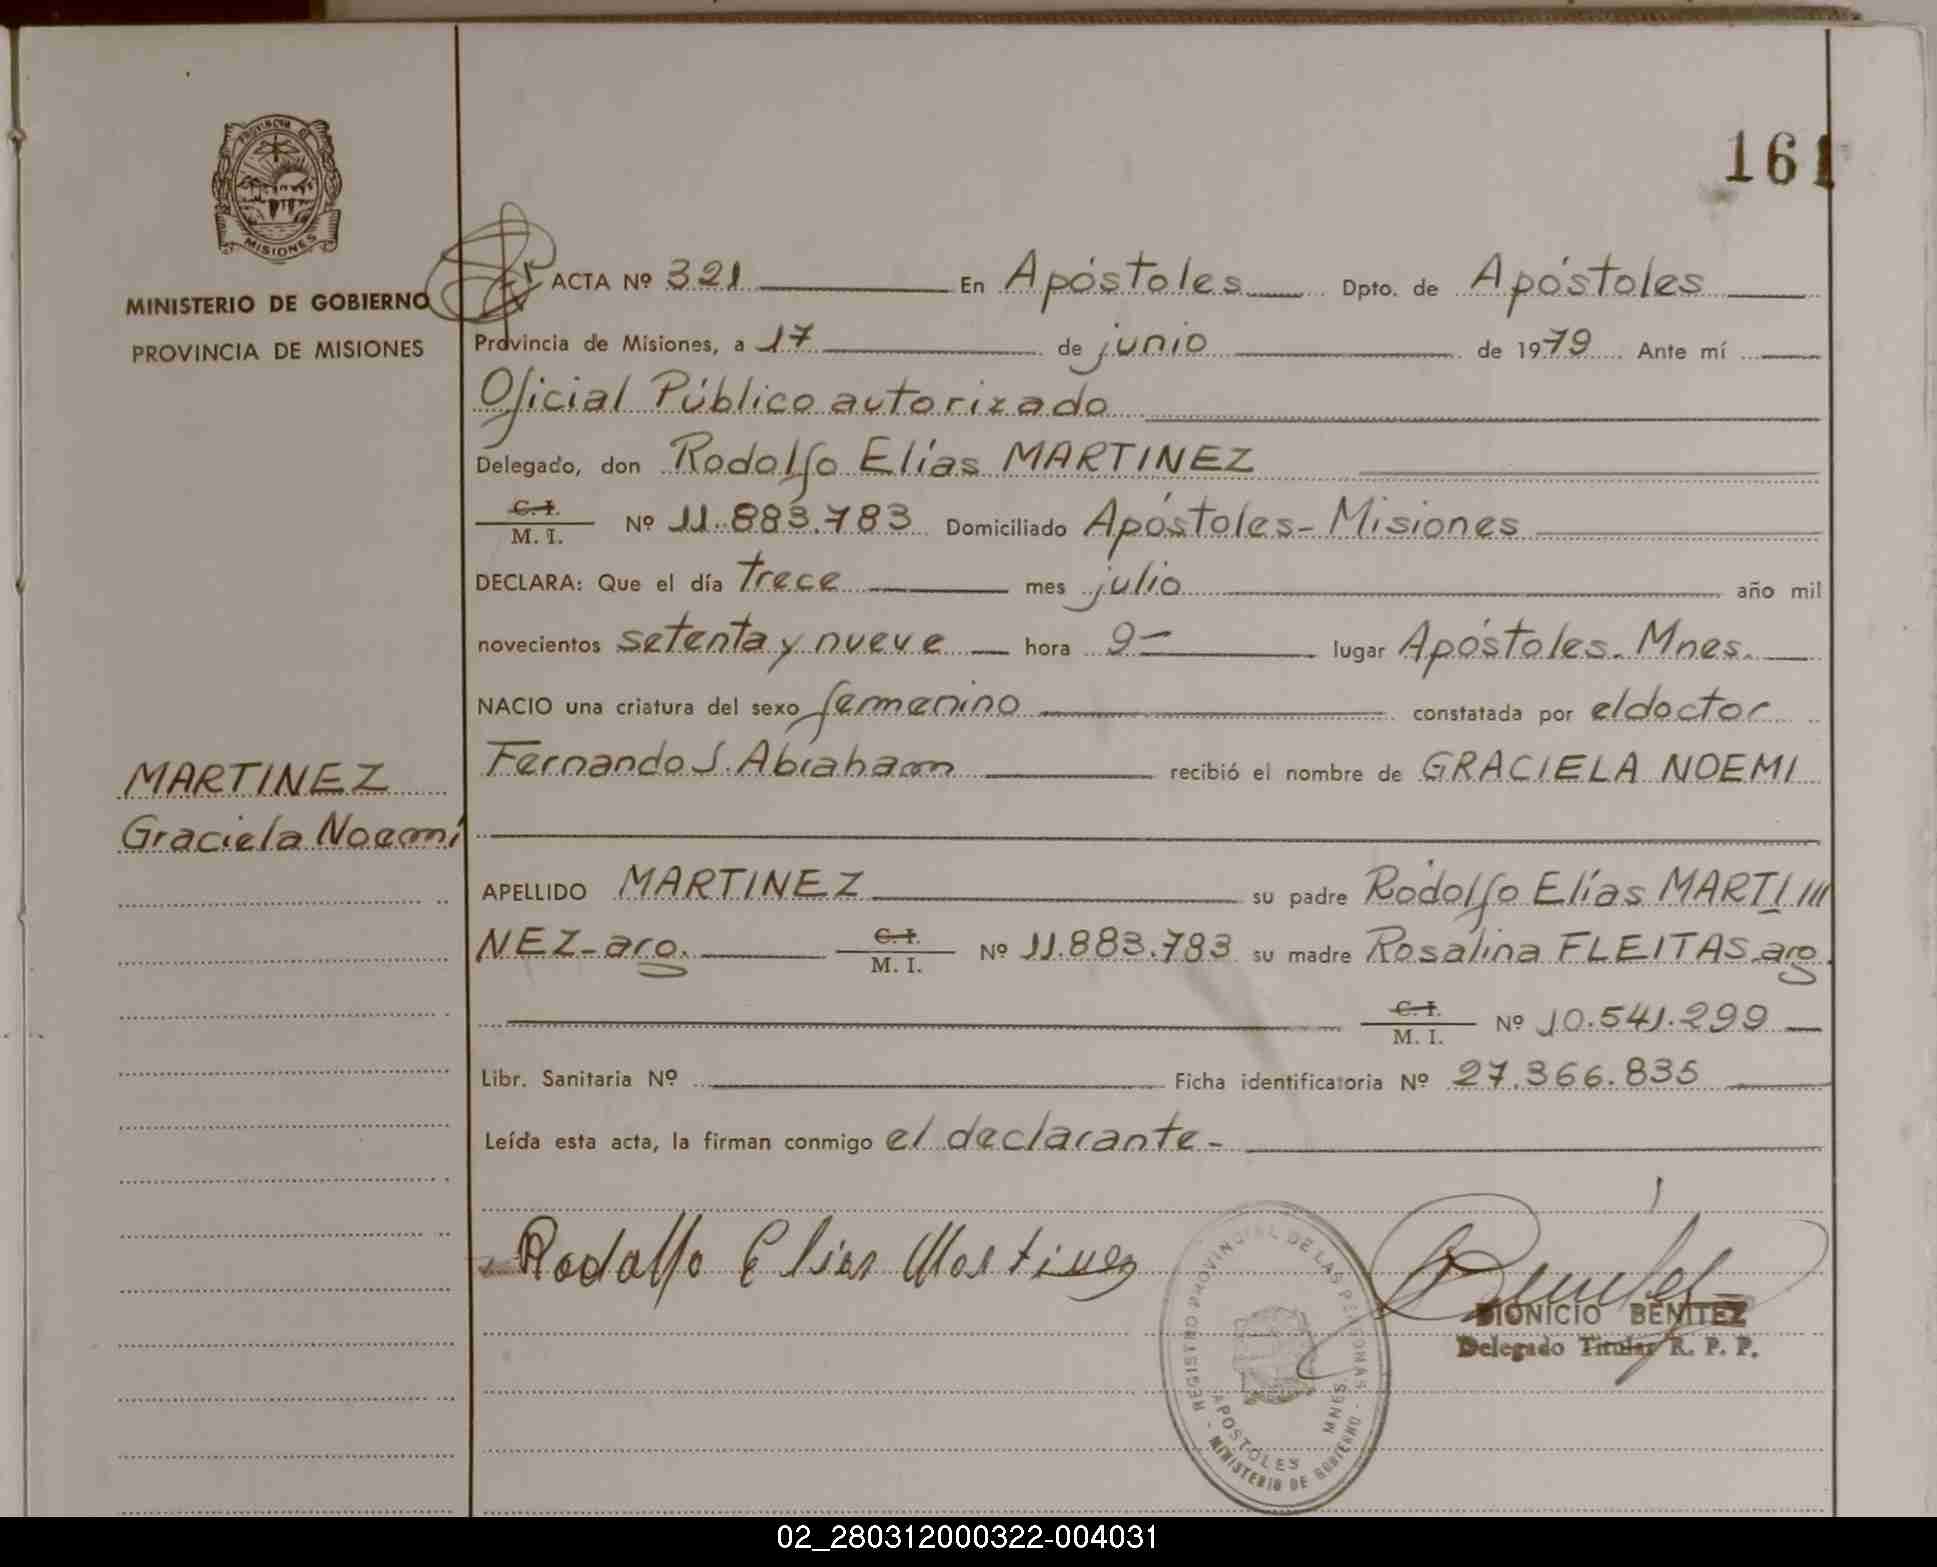 161
PROVINCIA DE
MISIONES
MINISTERIO DE GOBIERNO
PROVINCIA DE MISIONES
ACTA Nº 321 En Apóstoles Dpto. de Apóstoles
Provincia de Misiones, a 17 de junio de 1979 Ante mí
Oficial Público autorizado
Delegado, don Rodolfo Elías MARTINEZ
C. I.
M. I. Nº 11.883.783 Domiciliado Apóstoles - Misiones
DECLARA: Que el día trece mes julio año mil
novecientos setenta y nueve hora 9 - lugar Apóstoles. Mnes.
NACIO una criatura del sexo femenino constatada por el doctor
Fernando S. Abraham recibió el nombre de GRACIELA NOEMI
MARTINEZ
Graciela Noemí
APELLIDO MARTINEZ su padre Rodolfo Elías MARTI
NEZ - arg. C. I. M. I. Nº 11.883.783 su madre Rosalina FLEITAS arg.
C. I. M. I. Nº 10.541.299
Libr. Sanitaria Nº Ficha identificatoria Nº 27.366.835
Leída esta acta, la firman conmigo el declarante -
Rodolfo Elias Martinez
REGISTRO PROVINCIAL DE LAS PERSONAS
APOSTOLES MNES.
- MINISTERIO DE GOBIERNO -
DIONICIO BENITEZ
Delegado Titular R. P. P.
02_280312000322-004031